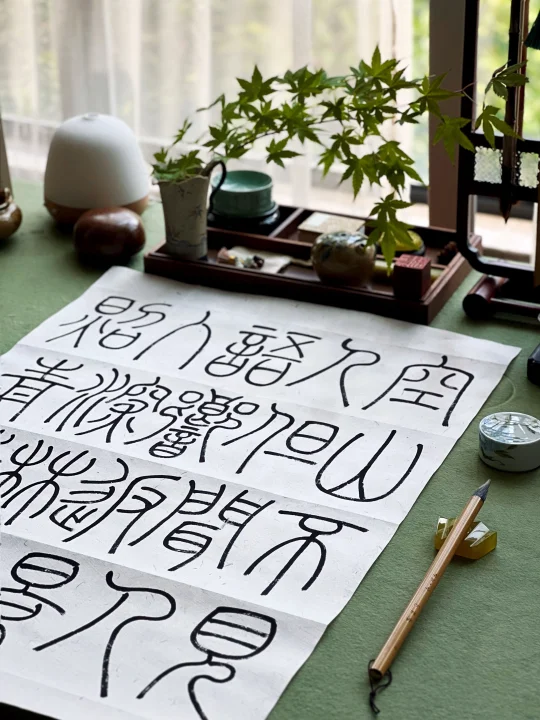 空山不見
人但聞人
語響返景
入深林
照青